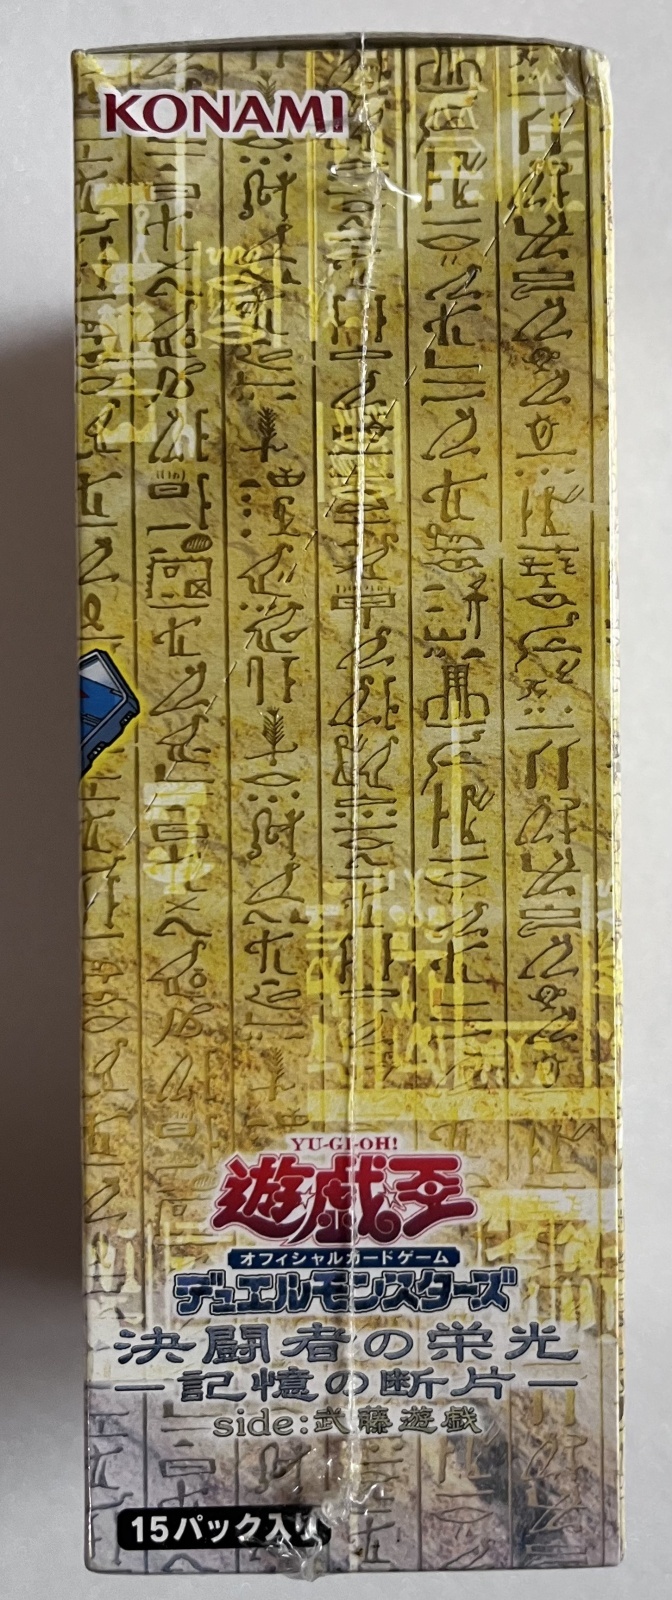 KONAMI
YU-GI-OH!
遊戯王
オフィシャルカードゲーム
デュエルモンスターズ
決闘者の栄光
―記憶の断片―
side:武藤遊戯
15パック入り